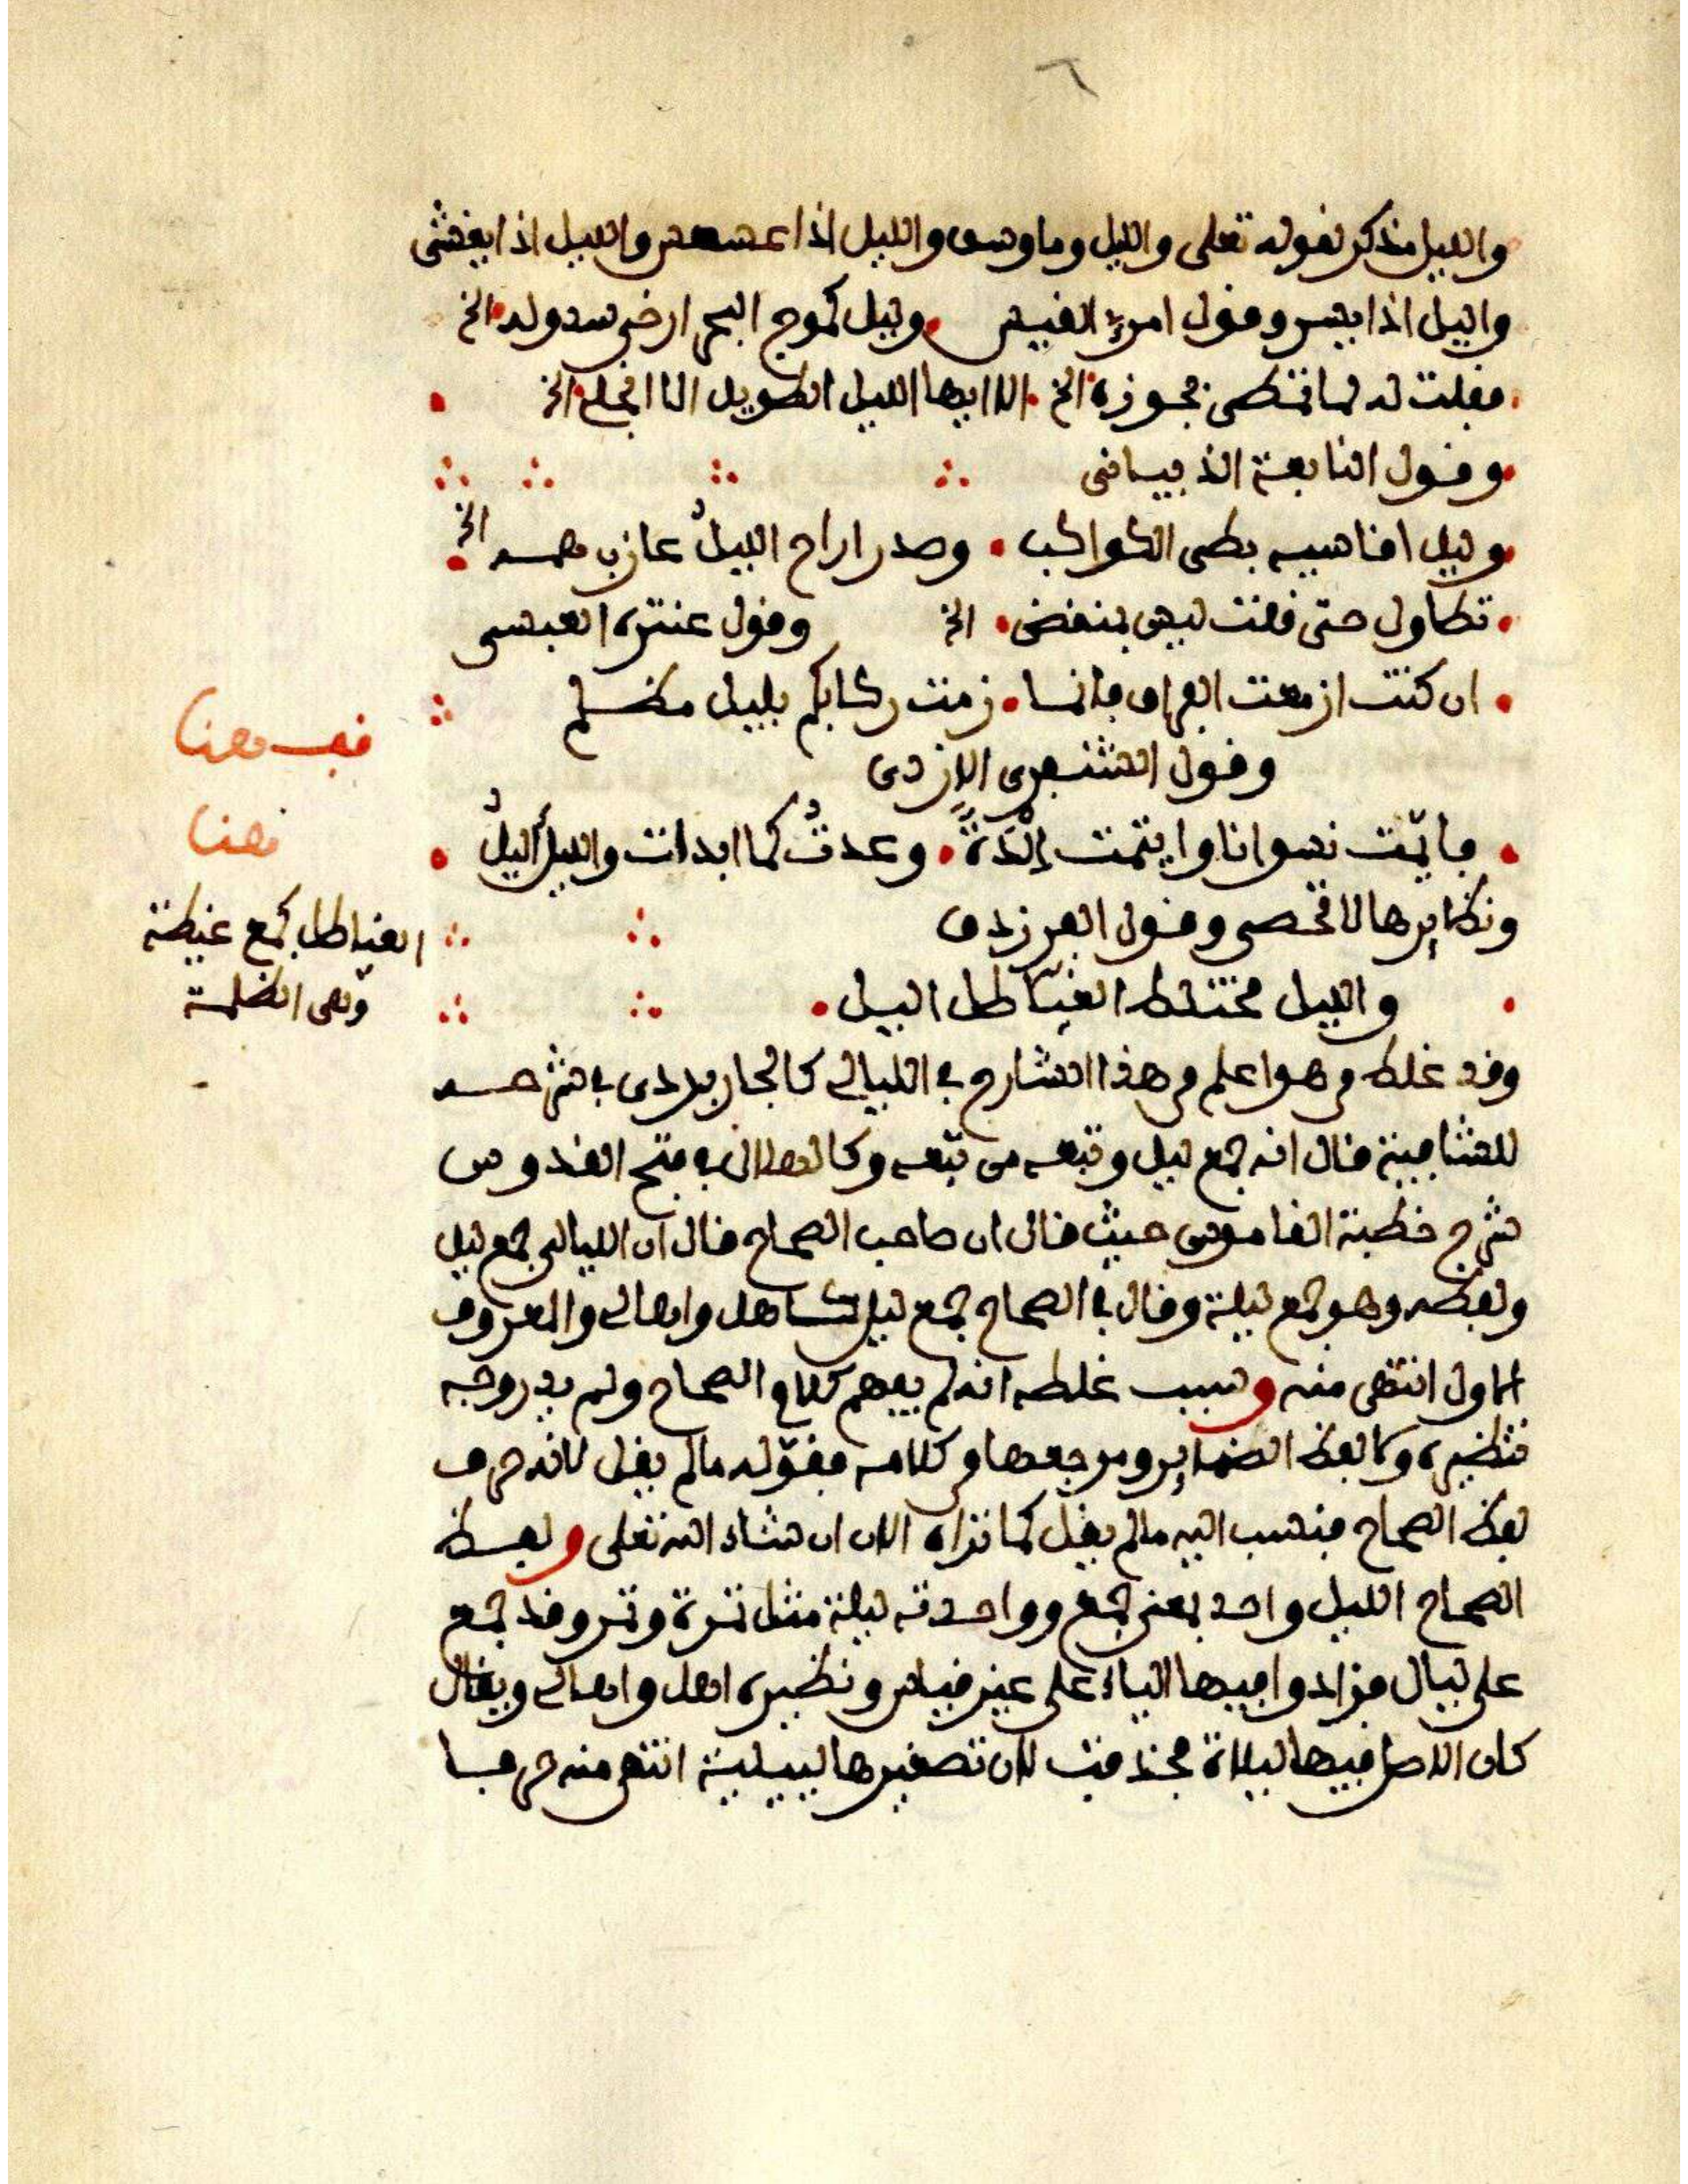 والليل مذكر لقوله تعلى والليل وما وسق والليل اذا عسعس والليل اذا يغشى
واليل اذا يسر وقول امرئ القيس وليل كموج البحر ارخى سدوله الخ
فقلت له لما تمطى بجوزه الخ الا ايها الليل الطويل الا انجلى الخ
وقول النابغة الذبيانى
وليل اقاسيه بطى الكواكب وصدر اراح الليلُ عازب همه الخ
تطاول حتى قلت ليس بمنقض الخ وقول عنترة العبسى
ان كنت ازمعت الفراق فانما زمت ركابكم بليل مظلم
وقول الشنفرى الازدى
فايّمت نسوانا وايتمت إلْدَةً وعدتُ كما ابدات والليل أليلُ
ونظايرها لا تحصى وقول الفرزدق
والليل مختلط الغياطل اليل
وقد غلط من هو اعلم من هذا الشارح في الليالي كالجاربردى في شرحه
للشافية فقال انه جمع ليل وتبعه من تبعه وكالهلالى في فتح القدوس
شرح خطبة القاموس حيث قال ان صاحب الصحاح قال ان الليالى جمع ليل
ولفظه وهو جمع ليلة وقال في الصحاح جمع ليل كاهل واهالى والمعروف
الاول انتهى منه وسبب غلطه انه لم يفهم كلام الصحاح ولم يدر وجه
تنظيره ولا لفظ الضماير ومرجعها من كلامه فقوّله ما لم يقل لانه حرف
لفظ الصحاح فنسب اليه ما لم يقل كما تراه الان ان شاء الله تعلى ولفظ
الصحاح الليل واحد بمعنى جمع وواحدته ليلة مثل تمرة وتمر وقد جمع
على ليال فزادوا فيها الياء على غير قياس ونظيره اهل واهالى ويقال
كان الاصل فيها ليلاة فحذفت لان تصغيرها لييلية انتهى منه حرفا
قف هنا
هنا
الغياطل جمع غيطلة
وهى الظلمة